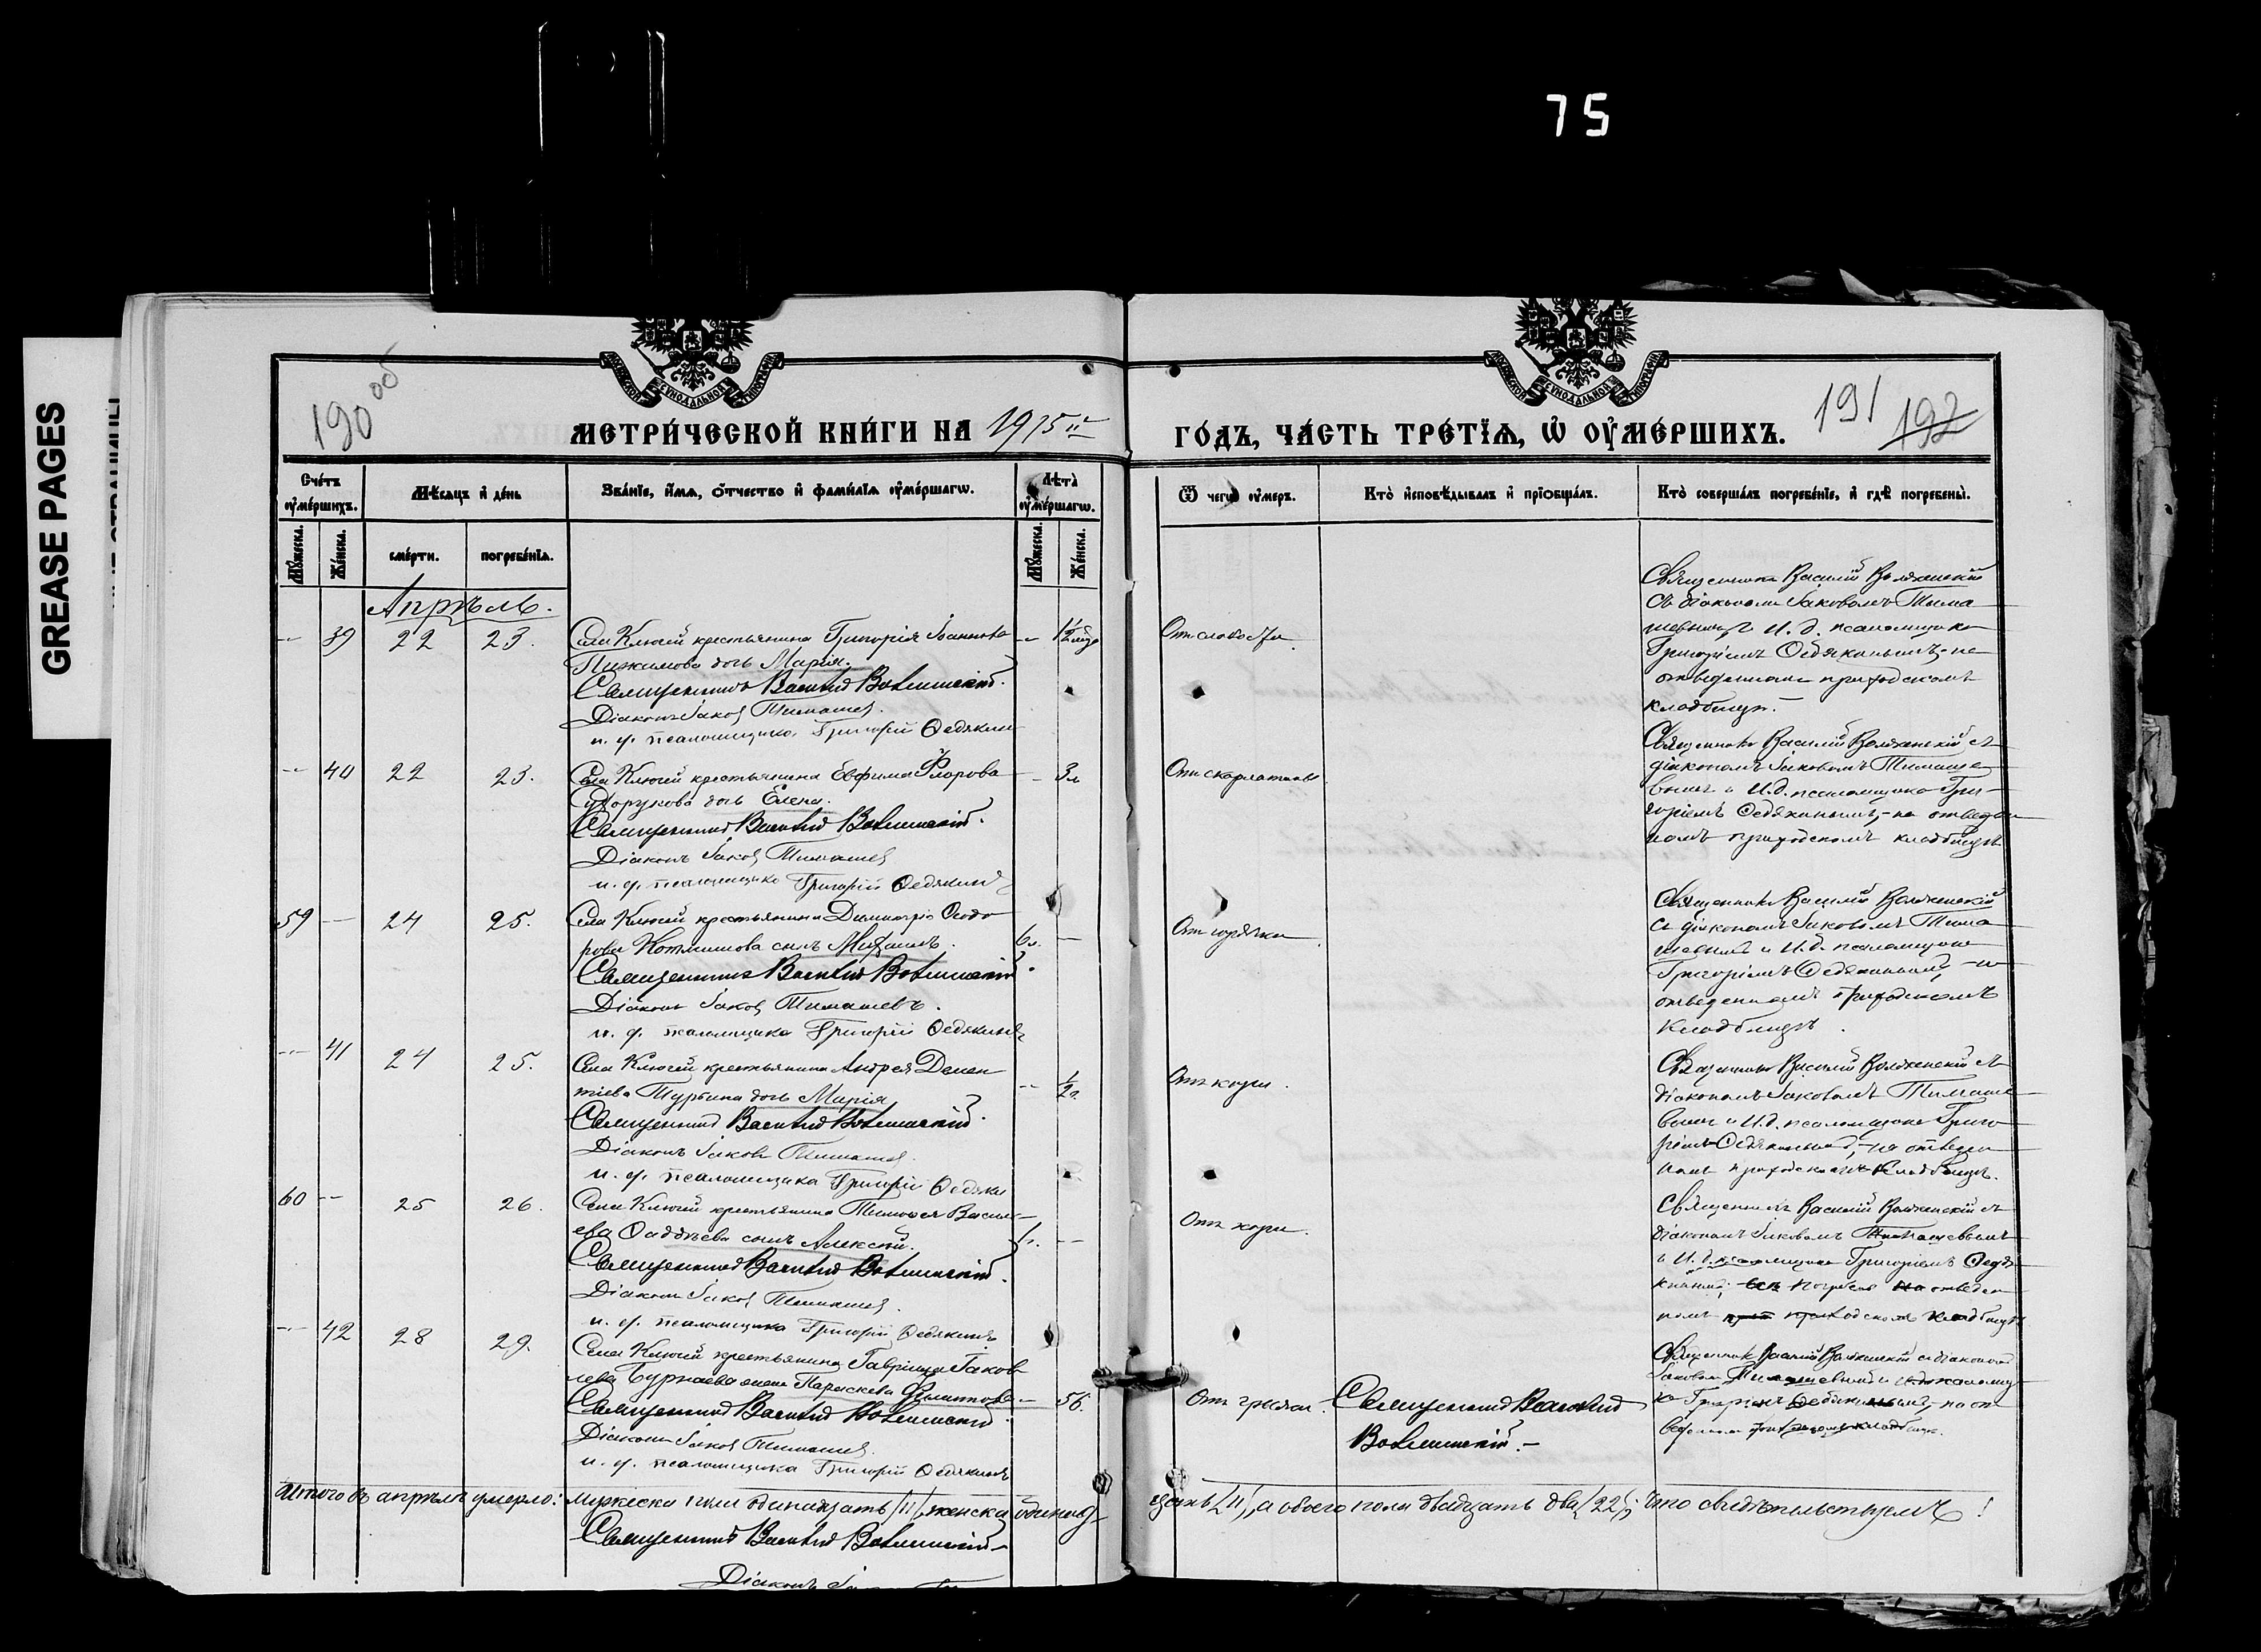 75
GREASE PAGES
190 об
МЕТРИ́ЧЕСКОЙ КНИ́ГИ НА 1915й
ГО́ДЪ, ЧА́СТЬ ТРЕ́ТЇѦ, Ѡ҆ ОУ҆МЕ́РШИХЪ.
191 192
Сче́тъ оу҆ме́ршихъ.
Мѣ́сѧцъ и҆ де́нь
Зва́нїе, и҆́мѧ, ѻ҆́тчество и҆ фами́лїѧ оу҆ме́ршагѡ.
Лѣ́та оу҆ме́ршагѡ.
Ѿ чегѡ̀ оу҆́меръ.
Кто̀ и҆сповѣ́дывалъ и҆ прїѡбща́лъ.
Кто̀ соверша́лъ погребе́нїе, и҆ гдѣ̀ погребены̀.
Мꙋ́жеска.
Же́нска.
сме́рти.
погребе́нїѧ.
Мꙋ́жеска.
Же́нска.
Апрѣль.
39 22 23. Села Ключей крестьянина Григорія Іоаннова
дочь Марія.
Священникъ Василій
Діаконъ Іаковъ Тимашев
и. д. псаломщика Григорій Федякин
Отъ слабости
Священникъ Василій
съ діакономъ Іаковомъ Тима
шевымъ и И. д. псаломщика
Григоріемъ Федякинымъ, на
отведенномъ приходскомъ
кладбищѣ.
40 22 23. Села Ключей крестьянина Евфима Флорова
дочь Елена.
Священникъ Василій
Діаконъ Іаковъ Тимашев
и. д. псаломщика Григорій Федякинъ
3л
Отъ скарлатины
Священникъ Василій съ
діакономъ Іаковомъ Тимаше
вымъ и И. д. псаломщика Гри-
горіемъ Федякинымъ, на отведен
номъ приходскомъ кладбищѣ
59 24 25. Села Ключей крестьянина Димитрія Ѳеодо
рова сынъ
Священникъ Василій
Діаконъ Іаковъ Тимашевъ.
и. д. псаломщика Григорій Федякинъ
Отъ горячки
Священникъ Василій
съ діакономъ Іаковомъ Тима
шевымъ и И. д. псаломщика
Григоріемъ Федякинымъ, на
отведенномъ приходскомъ
кладбищѣ.
41 24 25. Села Ключей крестьянина Андрея Демен
тіева дочь Марія
Священникъ Василій
Діаконъ Іаковъ Тимашев.
и. д. псаломщика Григорій Федяки
Отъ кори.
Священникъ Василій съ
діакономъ Іаковомъ Тимаше
вымъ и И. д. псаломщика Григо
ріемъ Федякинымъ, на отведен
номъ приходскомъ кладбищѣ.
60 25 26. Села Ключей крестьянина Тимофея Василь-
ева Фаддѣева сынъ Алексѣй.
Священникъ Василій
Діаконъ Іаковъ Тимашев.
и. д. псаломщика Григорій Федякинъ
Отъ кори.
Священникъ Василій съ
діакономъ Іаковомъ Тимашевымъ
и И. д. псаломщика Григоріемъ Федя
кинымъ на отведен
номъ приходскомъ кладбищѣ
42 28 29. Села Ключей крестьянина Гавріила Іаков
лева жена Параскева
Священникъ Василій
Діаконъ Іаковъ Тимашев.
и. д. псаломщика Григорій Федякинъ
56.
Отъ грыжи. Священникъ Василій
Священникъ Василій съ діакономъ
Іаковомъ Тимашевымъ и И. д. псаломщи
ка Григоріемъ Федякинымъ, на от
веденномъ приходскомъ кладбищѣ.
Итого въ апрѣлѣ умерло: мужеска пола одинадцать /11/, женска одинад-
цать /11/, а обоего пола двадцать два /22/; что свидѣтельствуемъ!
Священникъ Василій
Діаконъ